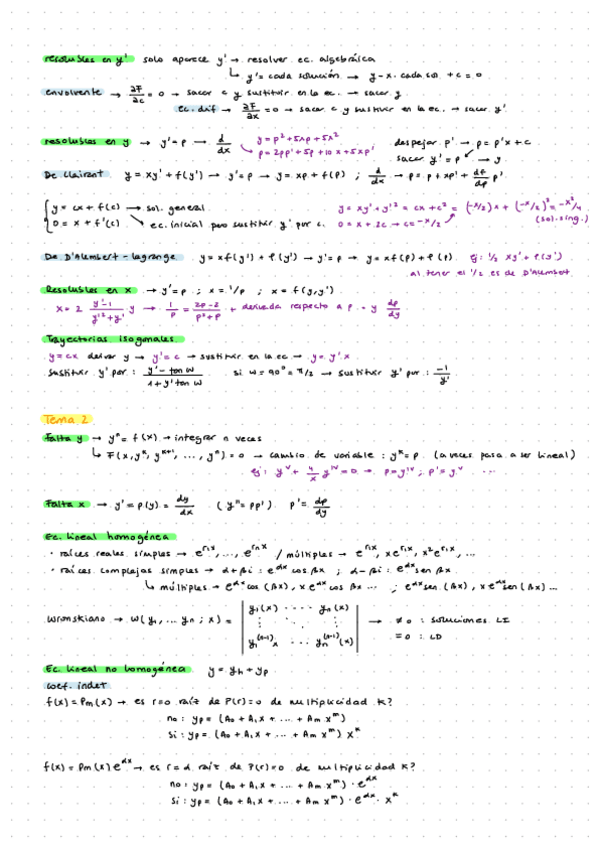 resolubles en y' solo aparece y' → resolver ec. algebráica
↳ y' = cada solución → y - x · cada sol. + c = 0
envolvente → ∂F/∂c = 0 → sacar c y sustituir en la ec. → sacar y
ec. dif → ∂F/∂x = 0 → sacar c y sustituir en la ec. → sacar y'
resolubles en y → y' = p → d/dx y = p² + 5xp + 5x² despejar p' → p = p'x + c
p = 2pp' + 5p + 10x + 5xp' sacar y' = p → y
De Clairant y = xy' + f(y') → y' = p → y = xp + f(p) ; d/dx → p = p + xp' + df/dp p'
{ y = cx + f(c) → sol. general y = xy' + y'² = cx + c² = (-x/2)x + (-x/2)² = -x²/4
0 = x + f'(c) ↘ ec. inicial pero sustituir y' por c. 0 = x + 2c → c = -x/2 (sol. sing.)
De D'Alembert - Lagrange y = xf(y') + f(y') → y' = p → y = xf(p) + f(p) ej: 1/2 xy' + f(y')
al tener el 1/2 es de D'Alembert
Resolubles en x → y' = p ; x = 1/p ; x = f(y,y')
x = 2 (y'-1)/(y'²+y') y → 1/p = (2p-2)/(p²+p) + derivada respecto a p · y dp/dy
Trayectorias isogonales
y = cx derivar y → y' = c → sustituir en la ec → y = y' x
sustituir y' por : (y' - tan w)/(1 + y' tan w) si w = 90° = π/2 → sustituir y' por : -1/y'
Tema 2
Falta y → yⁿ = f(x) → integrar n veces
↳ F(x, yᵏ, yᵏ⁺¹, ..., yⁿ) = 0 → cambio de variable : yᵏ = p (a veces pasa a ser lineal)
ej: yⱽ + 4/x yᴵⱽ = 0 → p = yᴵⱽ ; p' = yⱽ ...
Falta x → y' = p(y) = dy/dx (y'' = pp') p' = dp/dy
Ec. lineal homogénea
· raíces reales simples → e^{r₁x}, ..., e^{rₙx} / múltiples → e^{r₁x}, xe^{r₁x}, x²e^{r₁x}, ...
· raíces complejas simples → α + βi : e^{αx} cos βx ; α - βi : e^{αx} sen βx
↳ múltiples → e^{αx} cos (βx), x e^{αx} cos βx ... ; e^{αx} sen (βx), x e^{αx} sen (βx) ...
Wronskiano → W(y₁, ... yₙ ; x) = | y₁(x) ···· yₙ(x) ⋮ ⋱ ⋮ y₁⁽ⁿ⁻¹⁾x ··· yₙ⁽ⁿ⁻¹⁾(x) | → ≠ 0 : soluciones LI
= 0 : LD
Ec. lineal no homogénea y = yₕ + yₚ
coef. indet
f(x) = Pm(x) → es r=0 raíz de P(r)=0 de multiplicidad k?
no : yp = (A₀ + A₁x + ... + Am xᵐ)
si : yp = (A₀ + A₁x + ... + Am xᵐ) xᵏ
f(x) = Pm(x) e^{αx} → es r = α raíz de P(r)=0 de multiplicidad k?
no : yp = (A₀ + A₁x + ... + Am xᵐ) · e^{αx}
si : yp = (A₀ + A₁x + ... + Am xᵐ) · e^{αx} · xᵏ